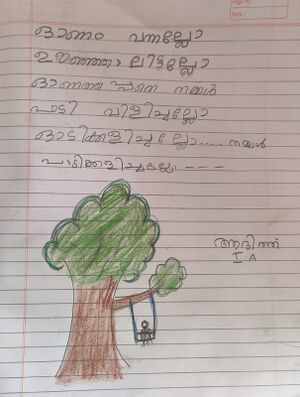 ഓണം വന്നല്ലോ
ഊഞ്ഞാലിട്ടല്ലോ
ഓണത്തപ്പനെ നമ്മൾ
പാടി വിളിച്ചല്ലോ
ഓടിക്കളിച്ചല്ലോ..... നമ്മൾ
പാടിക്കളിച്ചല്ലോ - - -
ആദിത്ത്
I A